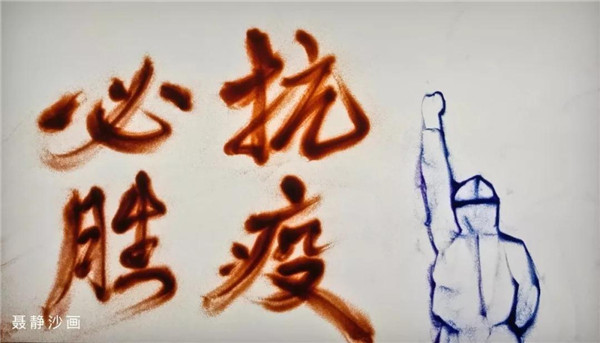 抗疫
必胜
聂静沙画